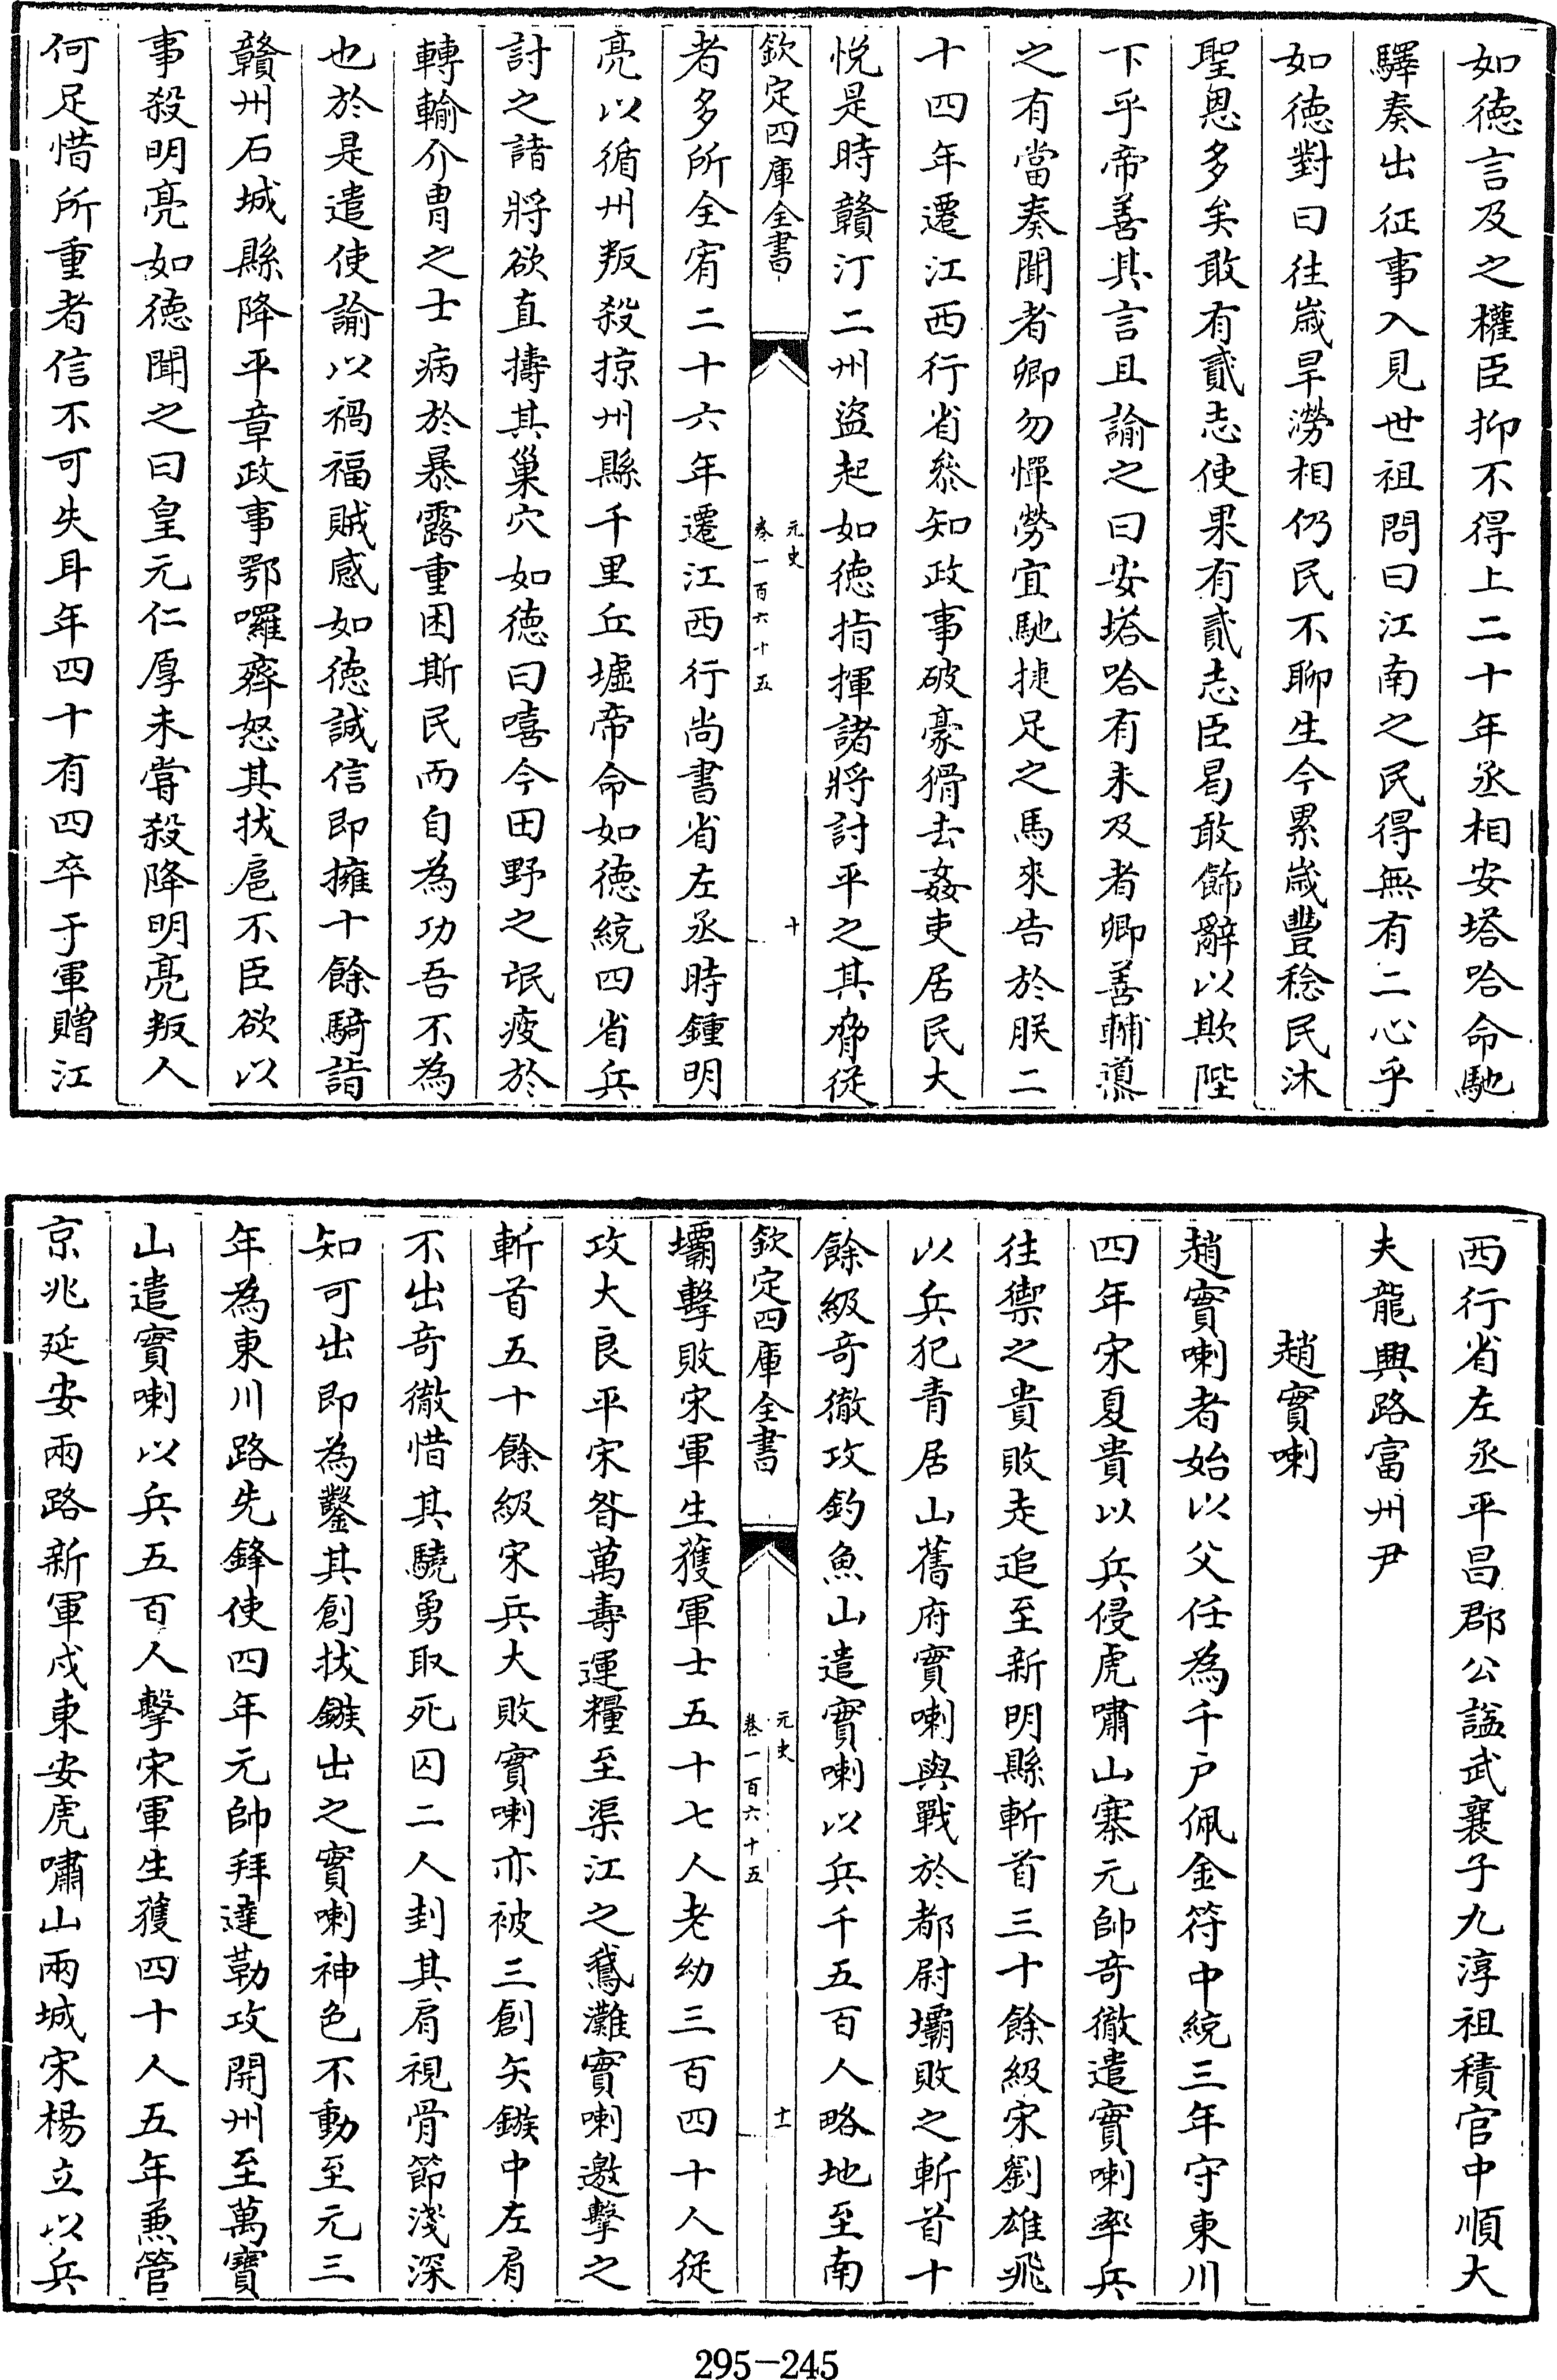 如徳言及之權臣抑不得上二十年丞相安塔哈命馳
驛奏出征事入見世祖問曰江南之民得無有二心乎
如徳對曰往歳旱澇相仍民不聊生今累歳豐稔民沐
聖恩多矣敢有貳志使果有貳志臣曷敢飾辭以欺陛
下乎帝善其言且諭之曰安塔哈有未及者卿善輔導
之有當奏聞者卿勿憚勞宜馳捷足之馬來告於朕二
十四年遷江西行省叅知政事破豪猾去姦吏居民大
悦是時贛汀二州盜起如徳指揮諸將討平之其脅從
欽定四庫全書
元史
卷一百六十五
十
者多所全宥二十六年遷江西行尚書省左丞時鍾明
亮以循州叛殺掠州縣千里丘墟帝命如徳統四省兵
討之諸將欲直擣其巢穴如徳曰嘻今田野之氓疲於
轉輸介冑之士病於暴露重困斯民而自為功吾不為
也於是遣使諭以禍福賊感如徳誠信即擁十餘騎詣
贛州石城縣降平章政事鄂囉齊怒其㧞扈不臣欲以
事殺明亮如徳聞之曰皇元仁厚未甞殺降明亮叛人
何足惜所重者信不可失耳年四十有四卒于軍贈江
西行省左丞平昌郡公謚武襄子九淳祖積官中順大
夫龍興路富州尹
趙實喇
趙實喇者始以父任為千戸佩金符中統三年守東川
四年宋夏貴以兵侵虎嘯山寨元帥竒徹遣實喇率兵
往禦之貴敗走追至新明縣斬首三十餘級宋劉雄飛
以兵犯青居山舊府實喇與戰於都尉壩敗之斬首十
餘級竒徹攻釣魚山遣實喇以兵千五百人略地至南
欽定四庫全書
元史
卷一百六十五
十一
壩擊敗宋軍生獲軍士五十七人老幼三百四十人從
攻大良平宋昝萬壽運糧至渠江之鵞灘實喇邀擊之
斬首五十餘級宋兵大敗實喇亦被三創矢鏃中左肩
不出竒徹惜其驍勇取死囚二人刲其肩視骨節淺深
知可出即為鑿其創拔鏃出之實喇神色不動至元三
年為東川路先鋒使四年元帥拜達勒攻開州至萬寳
山遣實喇以兵五百人擊宋軍生獲四十人五年兼管
京兆延安兩路新軍戍東安虎嘯山兩城宋楊立以兵
295-245